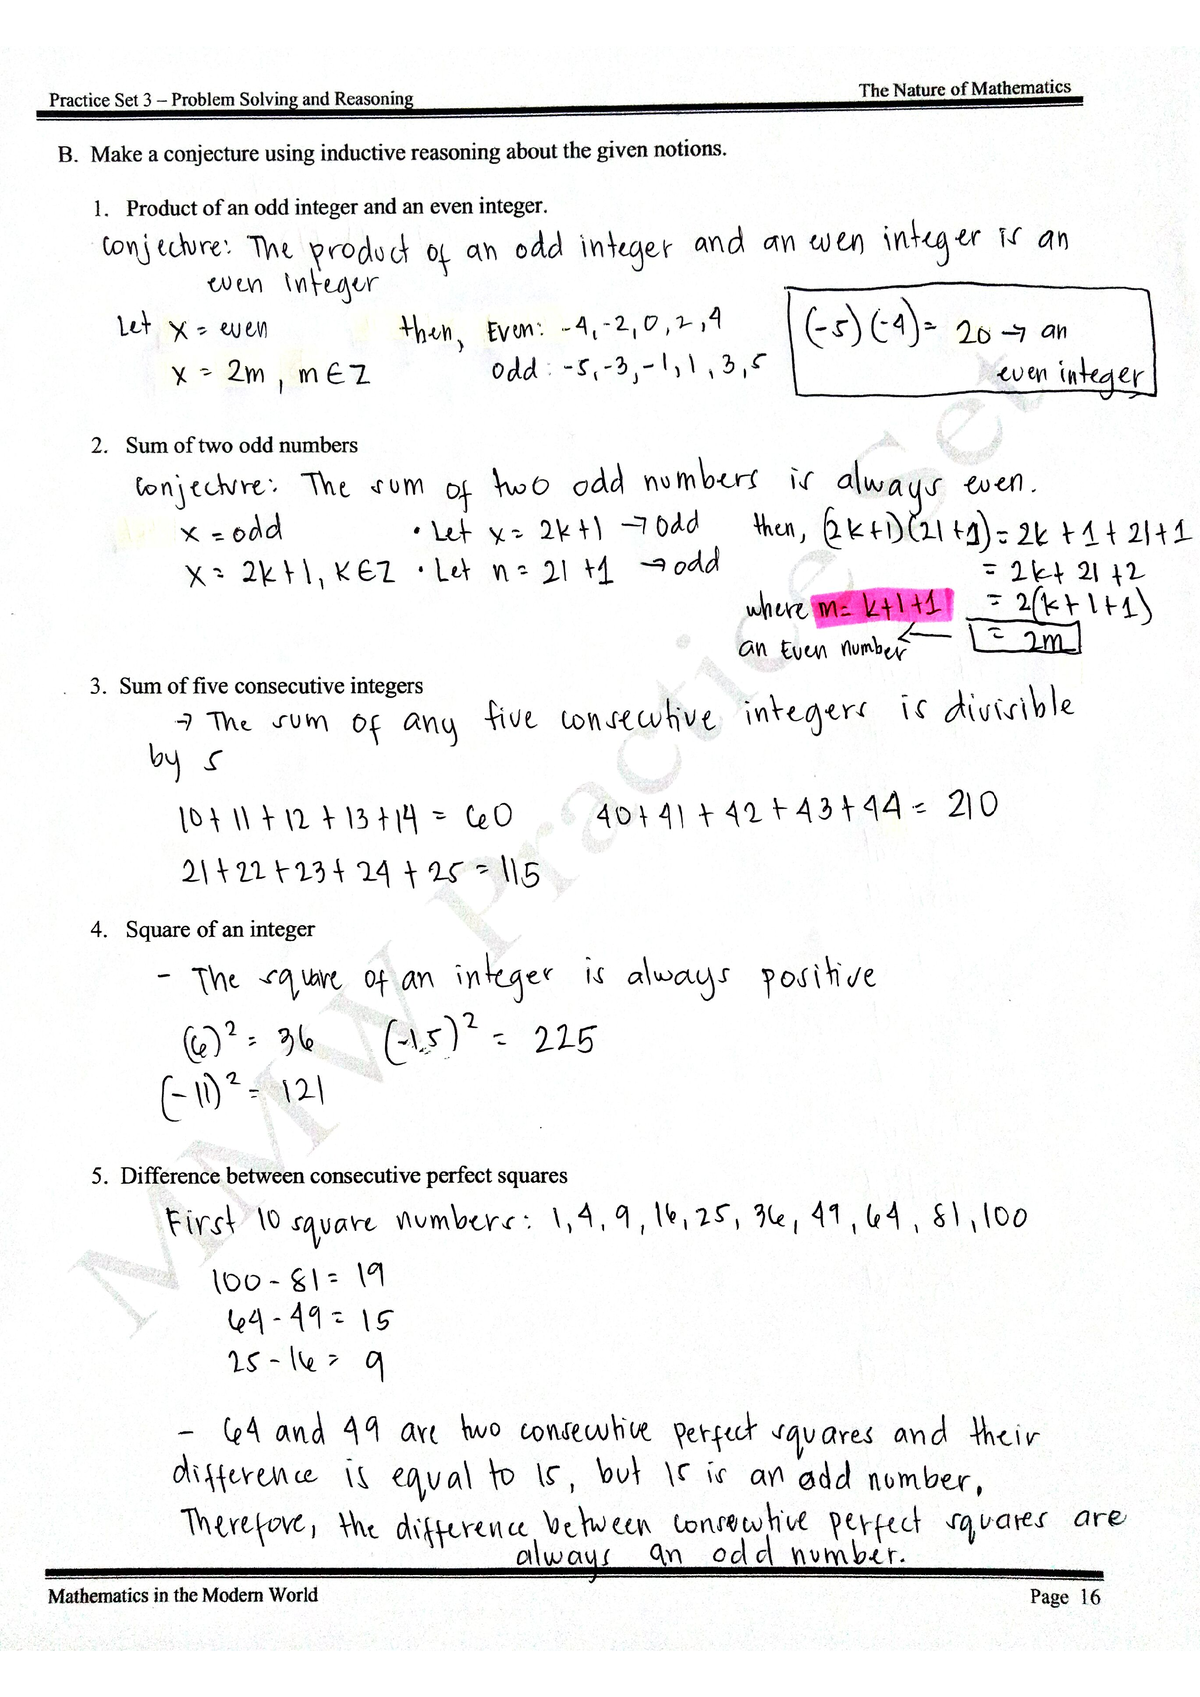 Practice Set 3 – Problem Solving and Reasoning
The Nature of Mathematics
B. Make a conjecture using inductive reasoning about the given notions.
1. Product of an odd integer and an even integer.
Conjecture: The product of an odd integer and an even integer is an
even integer
Let x = even then, Even: -4, -2, 0, 2, 4 (-5)(-4) = 20 → an
x = 2m, m ∈ Z odd: -5, -3, -1, 1, 3, 5 even integer
2. Sum of two odd numbers
Conjecture: The sum of two odd numbers is always even.
x = odd • Let x = 2k+1 → odd then, (2k+1)(2l+1) = 2k + 1 + 2l + 1
x = 2k+1, K ∈ Z • Let n = 2l + 1 → odd = 2k + 2l + 2
where m = k+l+1 = 2(k+l+1)
an Even number ← = 2m
3. Sum of five consecutive integers
→ The sum of any five consecutive integers is divisible
by 5
10 + 11 + 12 + 13 + 14 = 60 40 + 41 + 42 + 43 + 44 = 210
21 + 22 + 23 + 24 + 25 = 115
4. Square of an integer
- The square of an integer is always positive
(6)² = 36 (-15)² = 225
(-11)² = 121
5. Difference between consecutive perfect squares
First 10 square numbers: 1, 4, 9, 16, 25, 36, 49, 64, 81, 100
100 - 81 = 19
64 - 49 = 15
25 - 16 = 9
- 64 and 49 are two consecutive perfect squares and their
difference is equal to 15, but 15 is an odd number.
Therefore, the difference between consecutive perfect squares are
always an odd number.
MMW Practice Set
Mathematics in the Modern World
Page 16